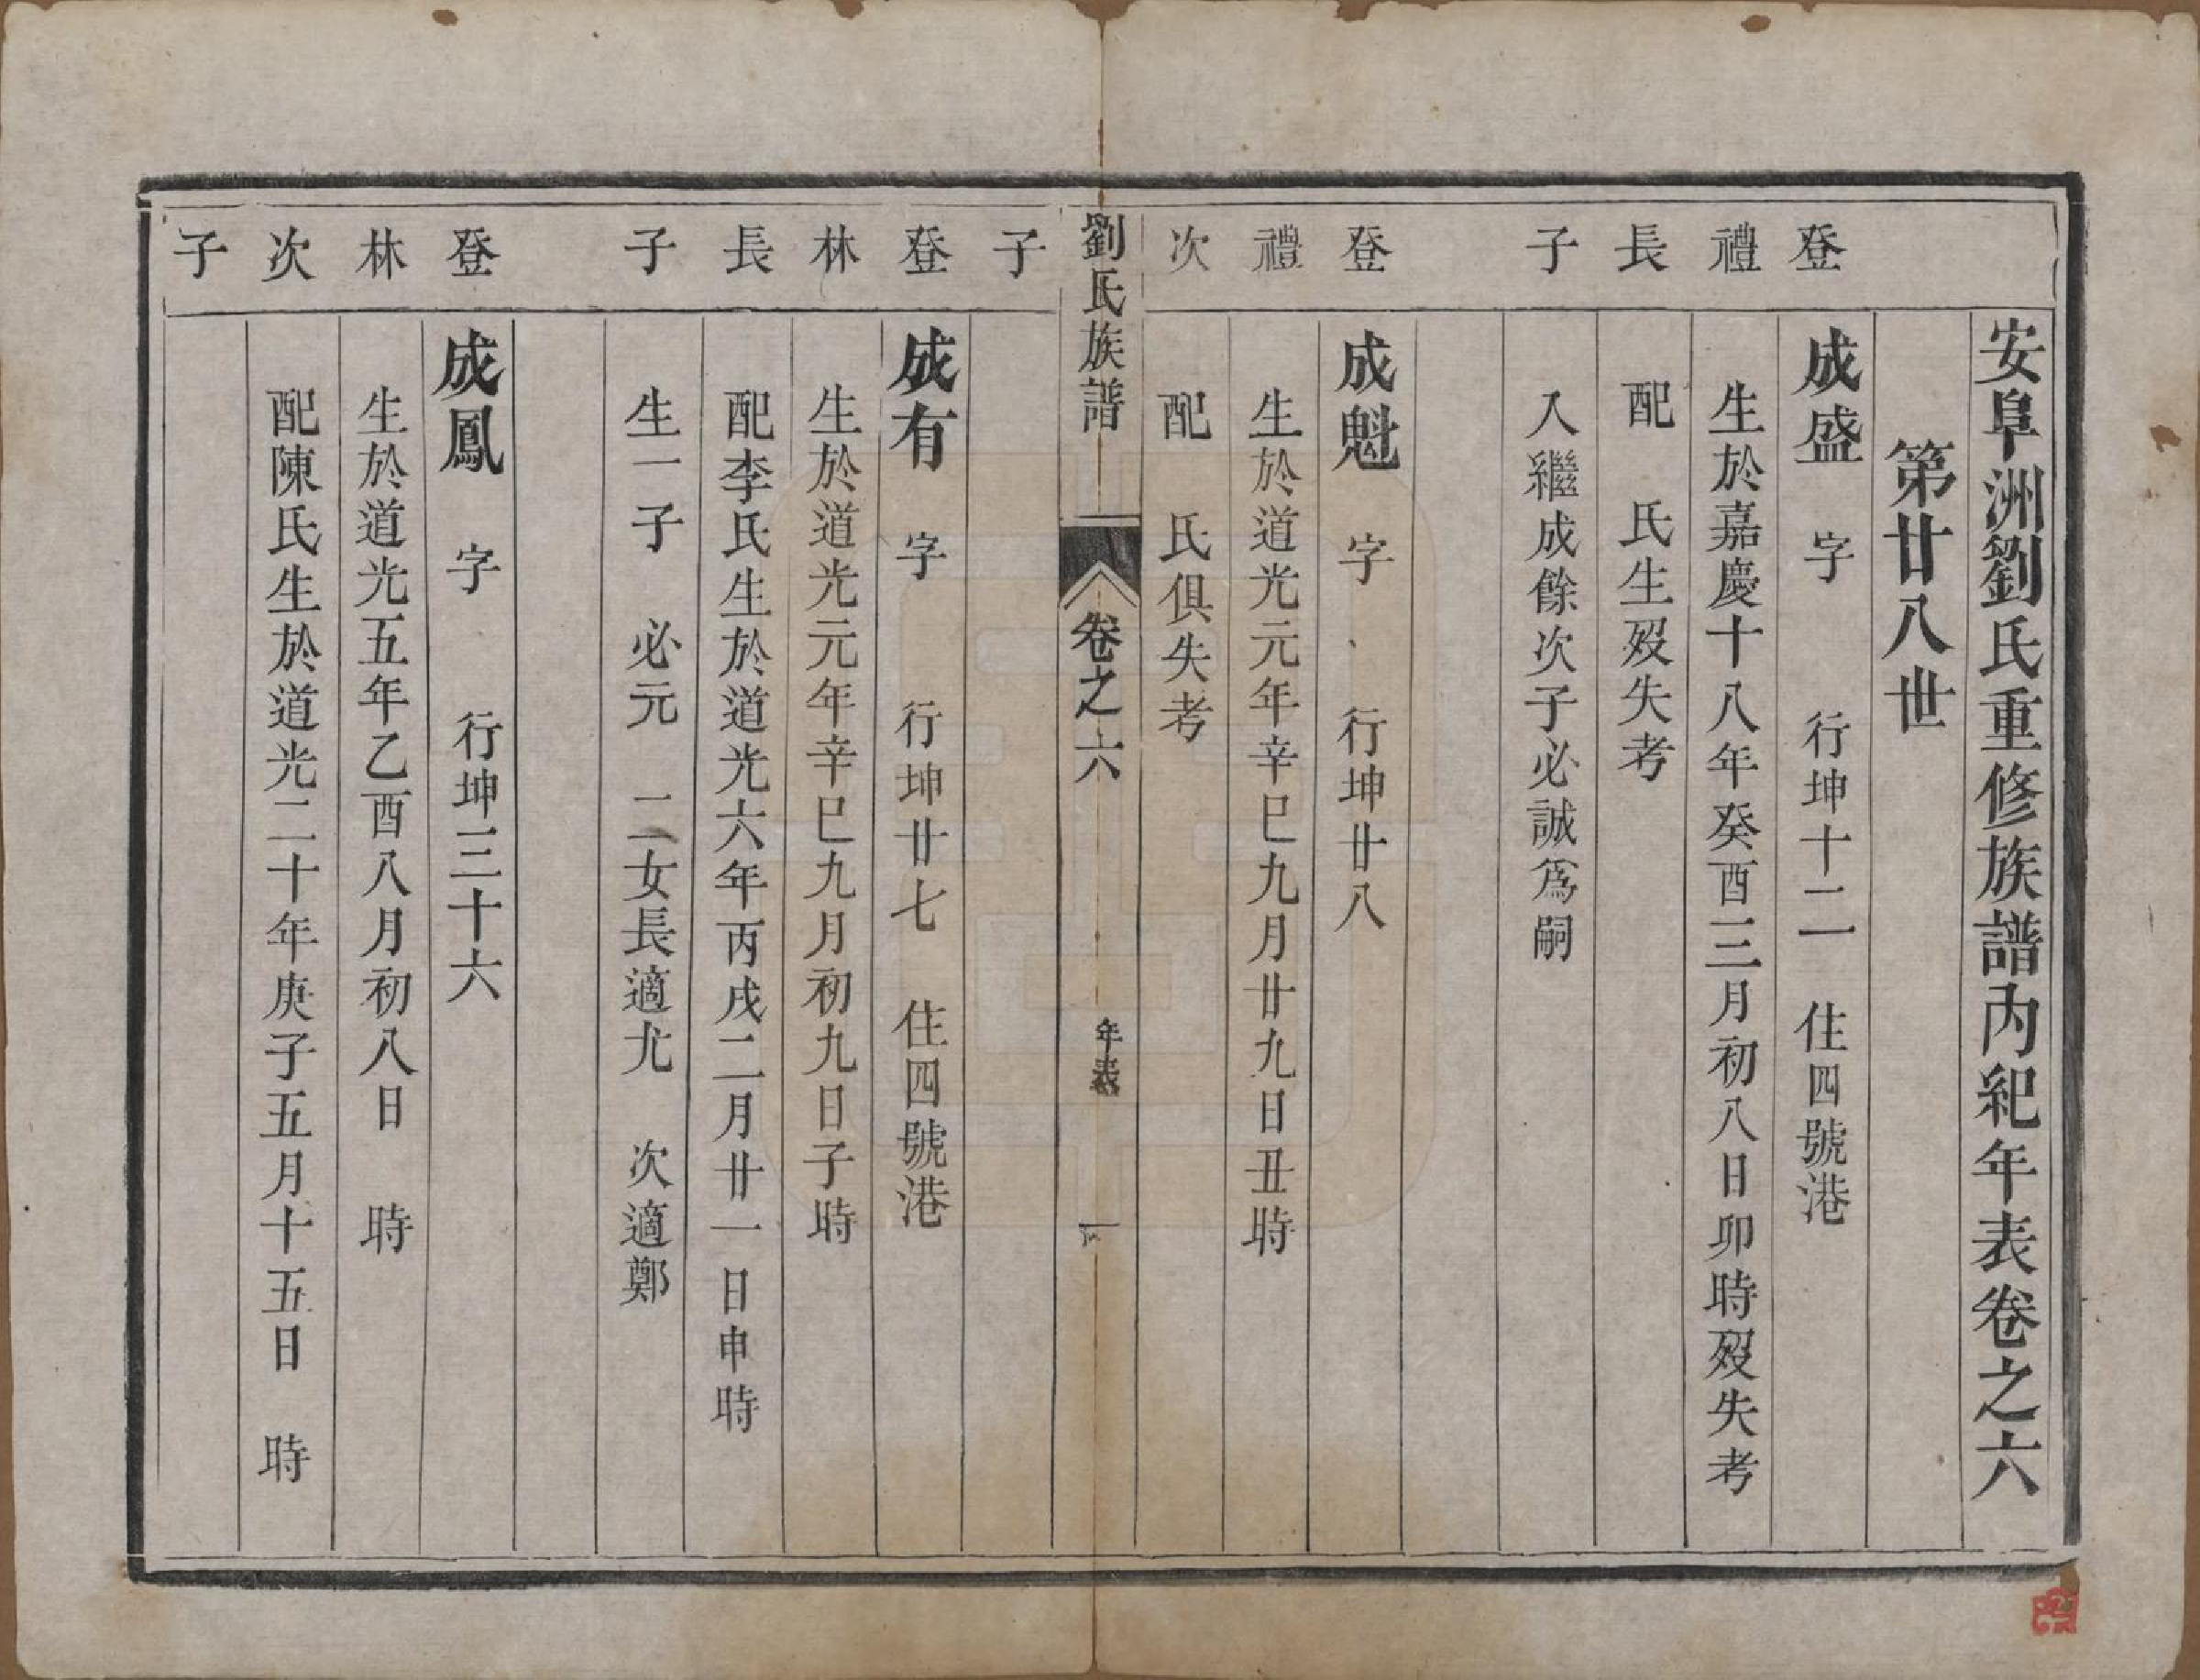 安阜洲劉氏重修族譜內紀年表卷之六
第廿八世
登禮長子
成盛 字 行坤十二 住四號港
生於嘉慶十八年癸酉三月初八日卯時歿失考
配 氏生歿失考
入繼成餘次子必誠為嗣
登禮次子
成魁 字 行坤廿八
生於道光元年辛巳九月廿九日丑時
配 氏俱失考
劉氏族譜 卷之六 年表 一
登林長子
成有 字 行坤廿七 住四號港
生於道光元年辛巳九月初九日子時
配李氏生於道光六年丙戌二月廿一日申時
生一子 必元 二女長適尤 次適鄭
登林次子
成鳳 字 行坤三十六
生於道光五年乙酉八月初八日 時
配陳氏生於道光二十年庚子五月十五日 時